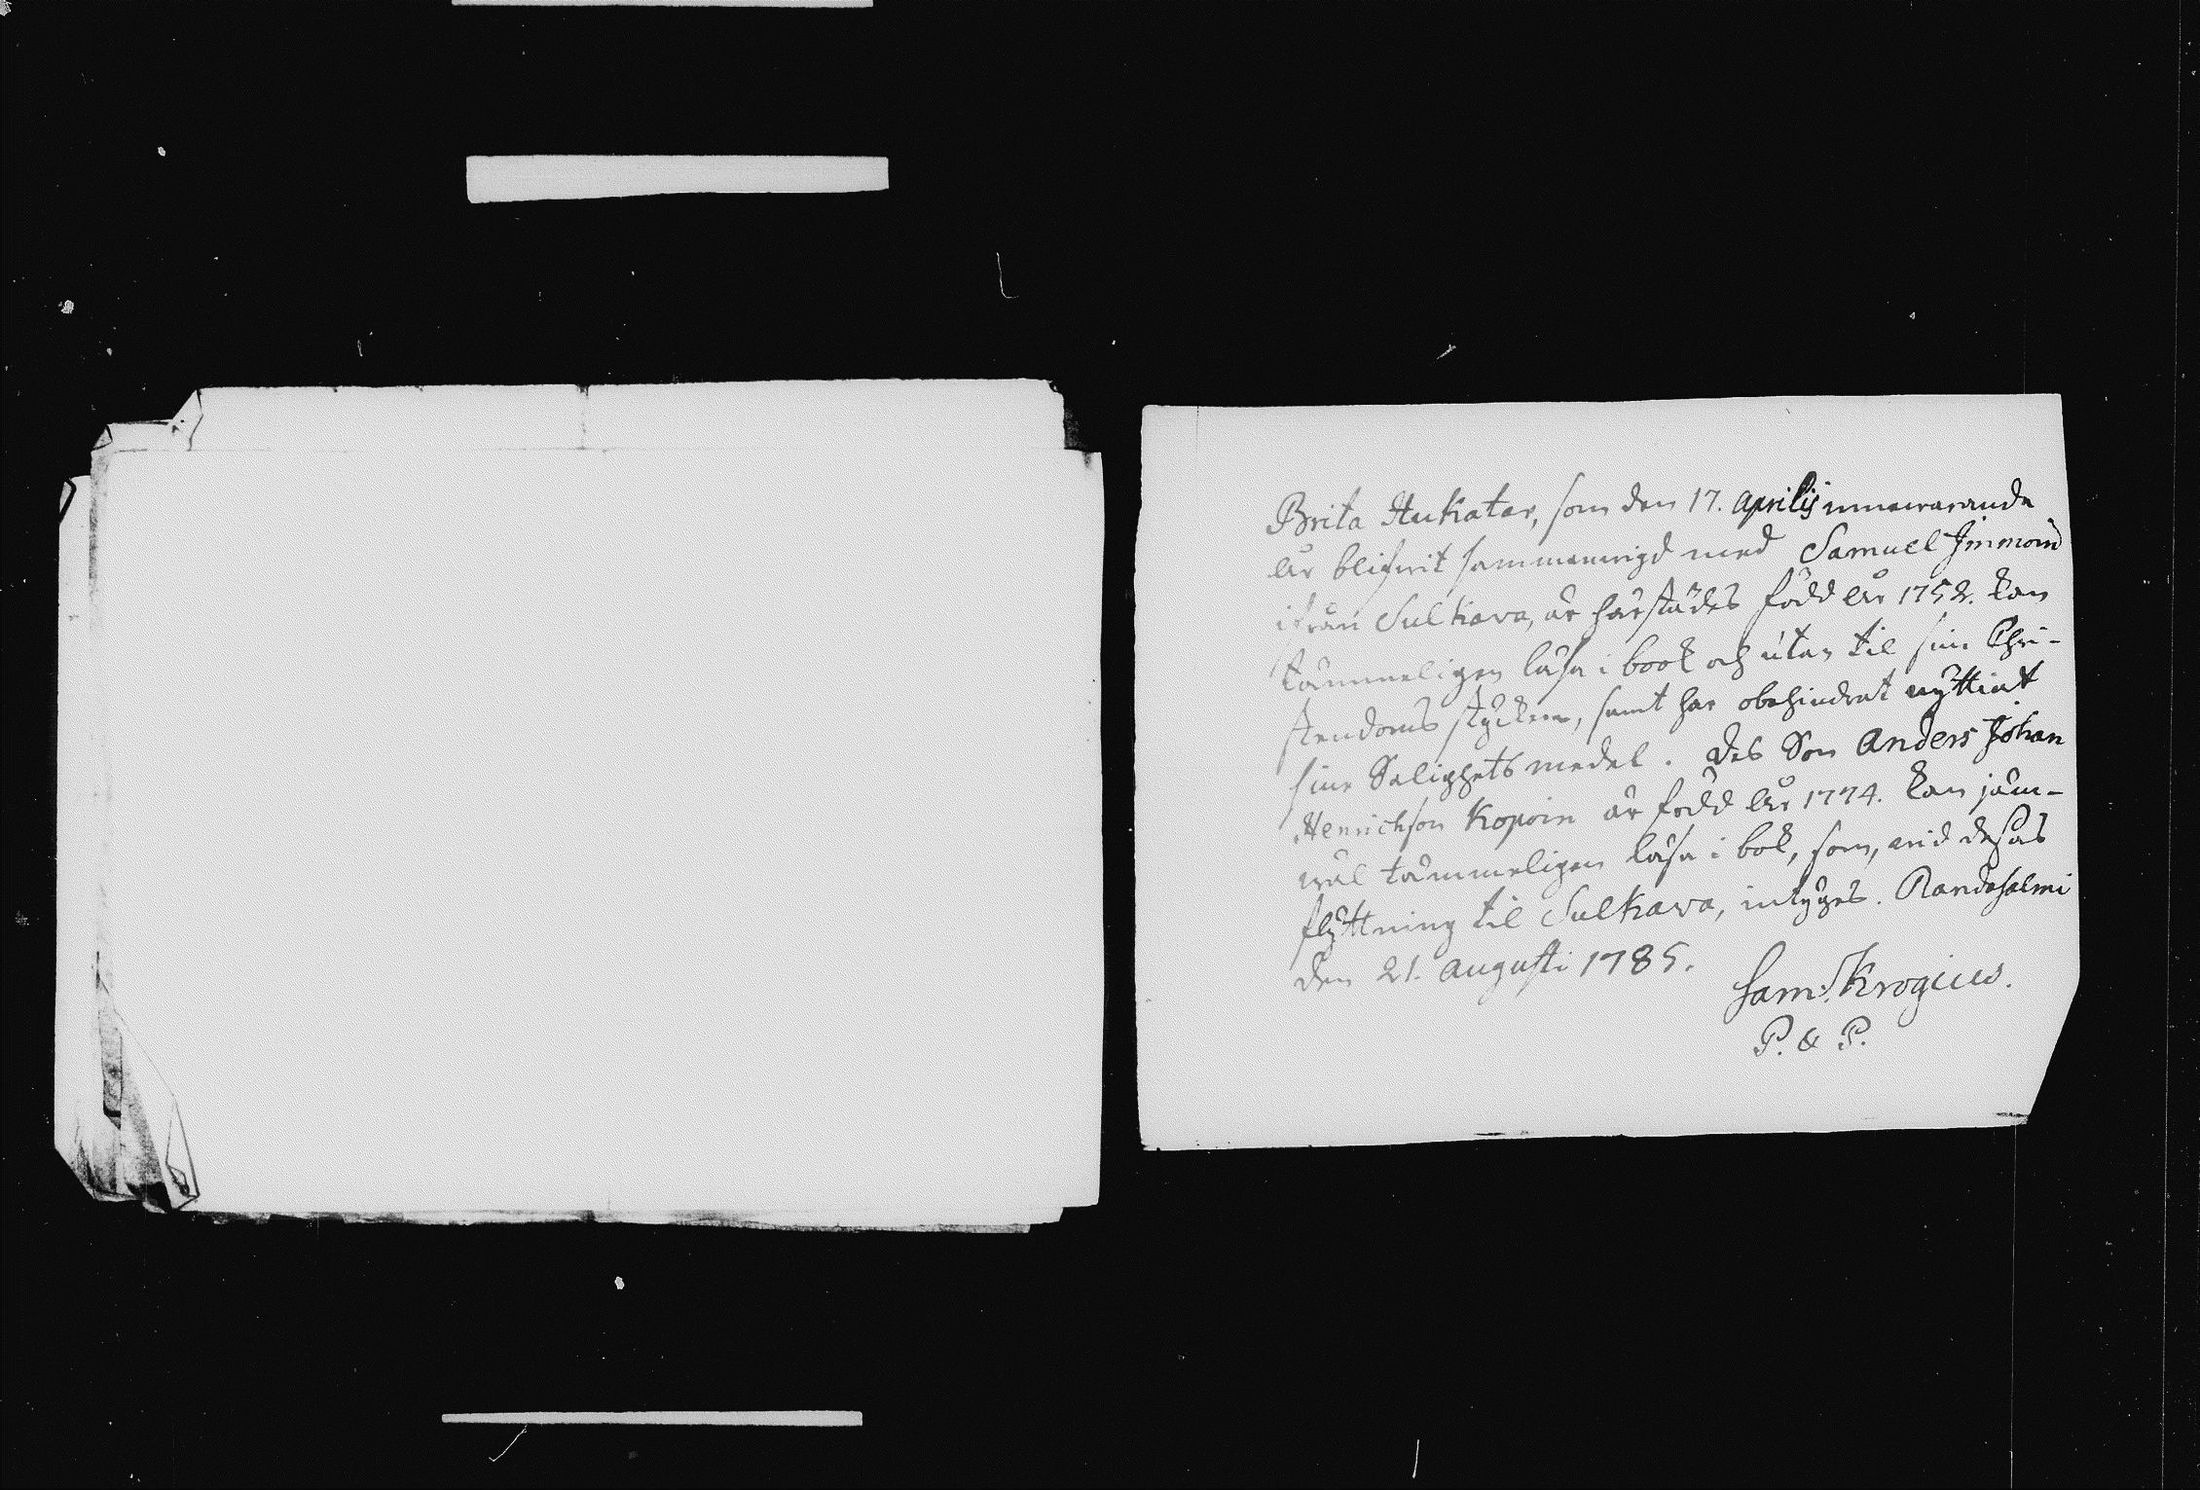 Brita Aukatar, som den 17. Aprilis innewarande
år blifwit sammanwigd med Samuel Immoin
ifrån Sulkava, är härstädes född år 1752. kan
tämmeligen läsa i book och utan til sin Chri-
stendoms stycken, samt har obehindrat nyttiat
sine Salighets medel. Des Son Anders Johan
Henrichson Kopoin är född år 1774. kan jäm-
wäl tämmeligen läsa i bok, som, wid desas
flyttning til Sulkava, intyges. Randasalmi
den 21. Augusti 1785.
Sam: Krogius.
P. & P.